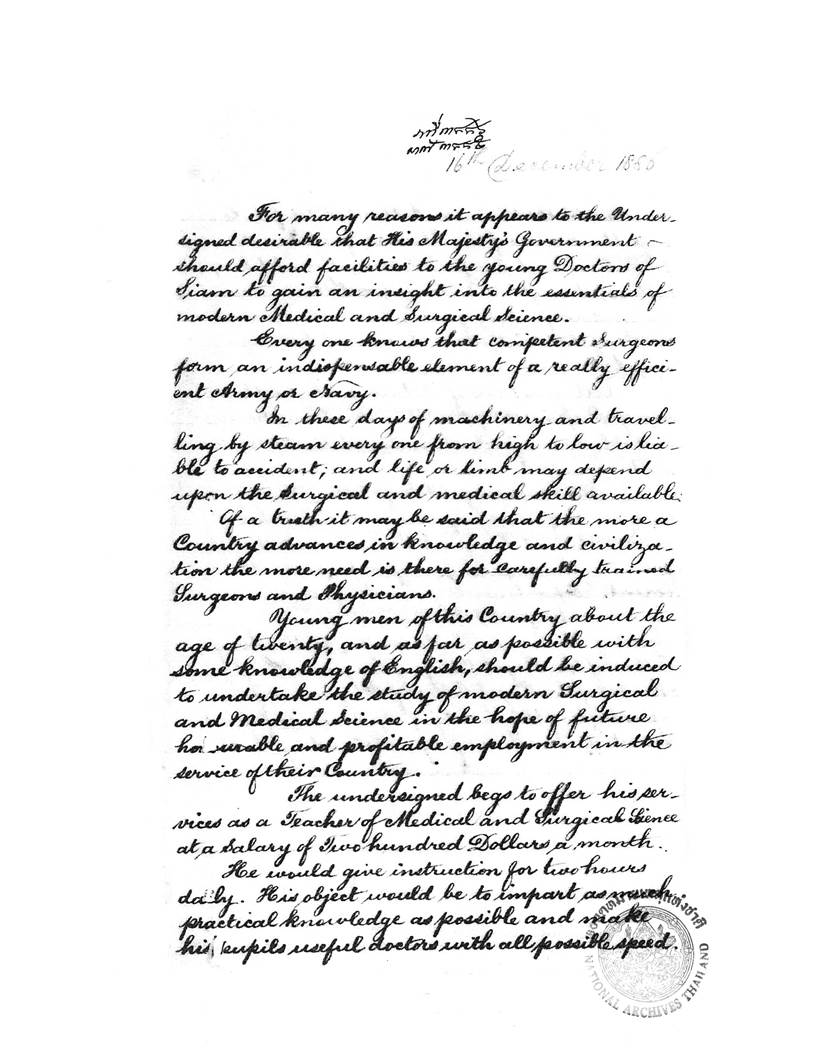 16th December 1886
For many reasons it appears to the Under-
signed desirable that His Majesty's Government -
should afford facilities to the young Doctors of
Siam to gain an insight into the essentials of
modern Medical and Surgical Science.
Every one knows that competent Surgeons
form an indispensable element of a really effici-
ent Army or Navy.
In these days of machinery and travel-
ling by steam every one from high to low is lia-
ble to accident; and life or limb may depend
upon the Surgical and medical skill available.
Of a truth it may be said that the more a
Country advances in knowledge and civiliza-
tion the more need is there for carefully trained
Surgeons and Physicians.
Young men of this Country about the
age of twenty, and as far as possible with
some knowledge of English, should be induced
to undertake the study of modern Surgical
and Medical Science in the hope of future
honourable and profitable employment in the
service of their Country.
The undersigned begs to offer his ser-
vices as a Teacher of Medical and Surgical Sience
at a Salary of Two hundred Dollars a month.
He would give instruction for two hours
daily. His object would be to impart as much
practical knowledge as possible and make
his pupils useful doctors with all possible speed.
หอจดหมายเหตุแห่งชาติ
NATIONAL ARCHIVES THAILAND